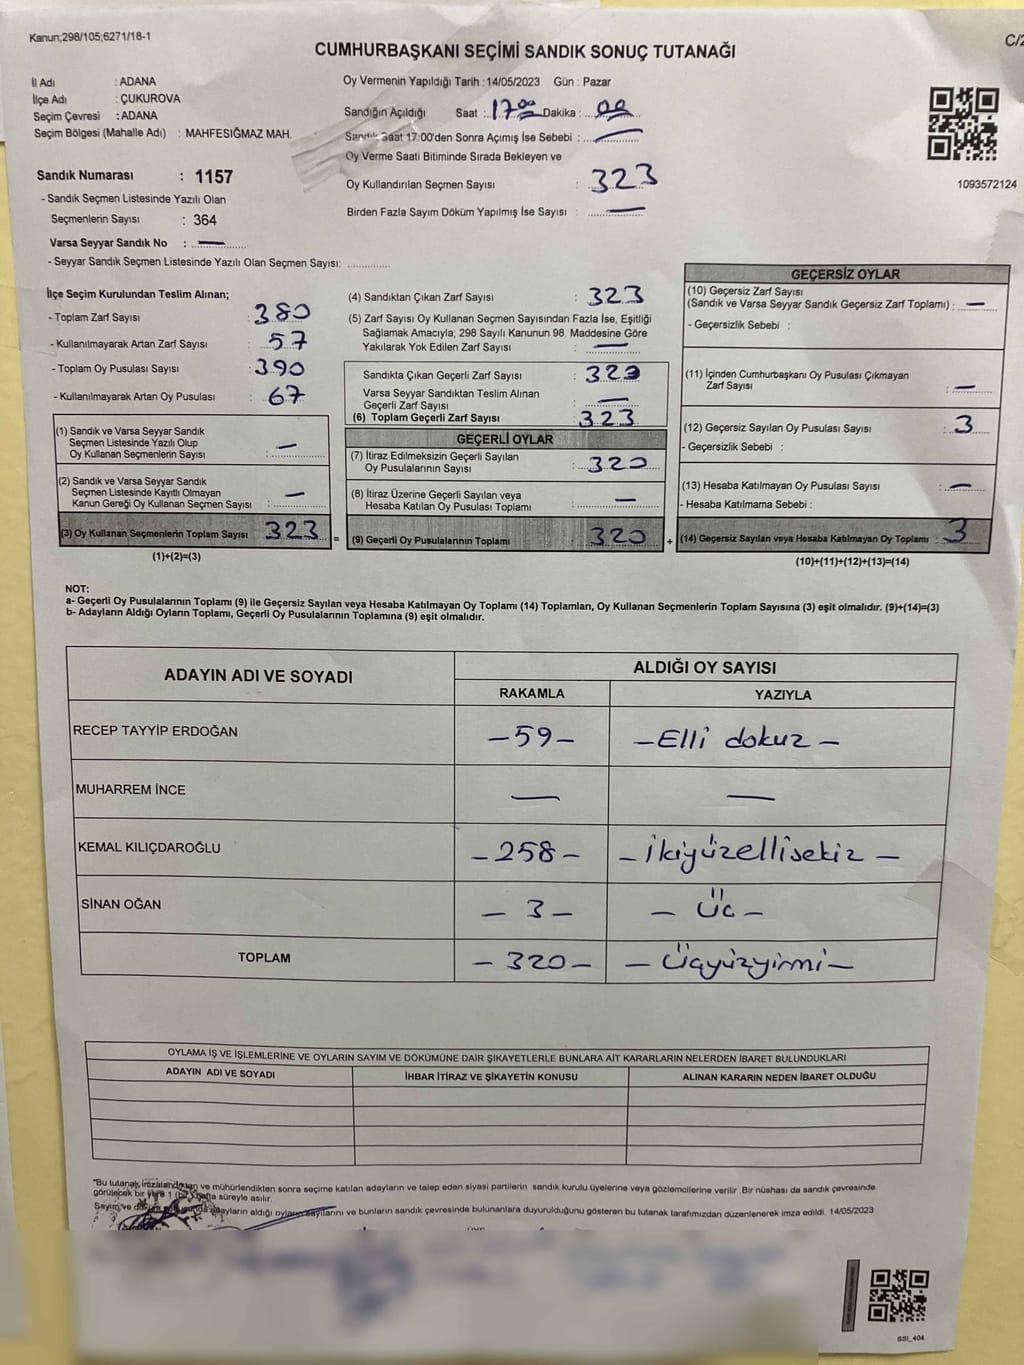 Kanun;298/105;6271/18-1
C/2
CUMHURBAŞKANI SEÇİMİ SANDIK SONUÇ TUTANAĞI
İl Adı : ADANA
İlçe Adı : ÇUKUROVA
Seçim Çevresi : ADANA
Seçim Bölgesi (Mahalle Adı) : MAHFESIĞMAZ MAH.
Sandık Numarası : 1157
- Sandık Seçmen Listesinde Yazılı Olan
Seçmenlerin Sayısı : 364
Varsa Seyyar Sandık No : —
- Seyyar Sandık Seçmen Listesinde Yazılı Olan Seçmen Sayısı: ............
Oy Vermenin Yapıldığı Tarih : 14/05/2023 Gün : Pazar
Sandığın Açıldığı Saat : 17.00 Dakika : 00
Sandık Saat 17:00'den Sonra Açımış İse Sebebi : —
Oy Verme Saati Bitiminde Sırada Bekleyen ve
Oy Kullandırılan Seçmen Sayısı : 323
Birden Fazla Sayım Döküm Yapılmış İse Sayısı : —
1093572124
İlçe Seçim Kurulundan Teslim Alınan;
- Toplam Zarf Sayısı : 380
- Kullanılmayarak Artan Zarf Sayısı : 57
- Toplam Oy Pusulası Sayısı : 390
- Kullanılmayarak Artan Oy Pusulası : 67
(1) Sandık ve Varsa Seyyar Sandık
Seçmen Listesinde Yazılı Olup
Oy Kullanan Seçmenlerin Sayısı : —
(2) Sandık ve Varsa Seyyar Sandık
Seçmen Listesinde Kayıtlı Olmayan
Kanun Gereği Oy Kullanan Seçmen Sayısı : —
(3) Oy Kullanan Seçmenlerin Toplam Sayısı 323 =
(1)+(2)=(3)
(4) Sandıktan Çıkan Zarf Sayısı : 323
(5) Zarf Sayısı Oy Kullanan Seçmen Sayısından Fazla İse, Eşitliği
Sağlamak Amacıyla; 298 Sayılı Kanunun 98. Maddesine Göre
Yakılarak Yok Edilen Zarf Sayısı : —
Sandıkta Çıkan Geçerli Zarf Sayısı : 323
Varsa Seyyar Sandıktan Teslim Alınan
Geçerli Zarf Sayısı : —
(6) Toplam Geçerli Zarf Sayısı : 323
GEÇERLİ OYLAR
(7) İtiraz Edilmeksizin Geçerli Sayılan
Oy Pusulalarının Sayısı : 320
(8) İtiraz Üzerine Geçerli Sayılan veya
Hesaba Katılan Oy Pusulası Toplamı : —
(9) Geçerli Oy Pusulalarının Toplamı 320 +
GEÇERSİZ OYLAR
(10) Geçersiz Zarf Sayısı
(Sandık ve Varsa Seyyar Sandık Geçersiz Zarf Toplamı) : —
- Geçersizlik Sebebi :
(11) İçinden Cumhurbaşkanı Oy Pusulası Çıkmayan
Zarf Sayısı : —
(12) Geçersiz Sayılan Oy Pusulası Sayısı : 3
- Geçersizlik Sebebi :
(13) Hesaba Katılmayan Oy Pusulası Sayısı : —
- Hesaba Katılmama Sebebi :
(14) Geçersiz Sayılan veya Hesaba Katılmayan Oy Toplamı : 3
(10)+(11)+(12)+(13)=(14)
NOT:
a- Geçerli Oy Pusulalarının Toplamı (9) ile Geçersiz Sayılan veya Hesaba Katılmayan Oy Toplamı (14) Toplamları, Oy Kullanan Seçmenlerin Toplam Sayısına (3) eşit olmalıdır. (9)+(14)=(3)
b- Adayların Aldığı Oyların Toplamı, Geçerli Oy Pusulalarının Toplamına (9) eşit olmalıdır.
ADAYIN ADI VE SOYADI ALDIĞI OY SAYISI
RAKAMLA YAZIYLA
RECEP TAYYİP ERDOĞAN – 59 – – Elli dokuz –
MUHARREM İNCE — —
KEMAL KILIÇDAROĞLU – 258 – – İkiyüzellisekiz –
SİNAN OĞAN – 3 – – Üç –
TOPLAM – 320 – – Üçyüzyirmi –
OYLAMA İŞ VE İŞLEMLERİNE VE OYLARIN SAYIM VE DÖKÜMÜNE DAİR ŞİKAYETLERLE BUNLARA AİT KARARLARIN NELERDEN İBARET BULUNDUKLARI
ADAYIN ADI VE SOYADI İHBAR İTİRAZ VE ŞİKAYETİN KONUSU ALINAN KARARIN NEDEN İBARET OLDUĞU
"Bu tutanak, imzalandıktan ve mühürlendikten sonra seçime katılan adayların ve talep eden siyasi partilerin sandık kurulu üyelerine veya gözlemcilerine verilir .Bir nüshası da sandık çevresinde
görülecek bir yere 1 (bir) hafta süreyle asılır.
Sayım ve adayların aldığı oyların sayılarını ve bunların sandık çevresinde bulunanlara duyurulduğunu gösteren bu tutanak tarafımızdan düzenlenerek imza edildi. 14/05/2023
SSI_404